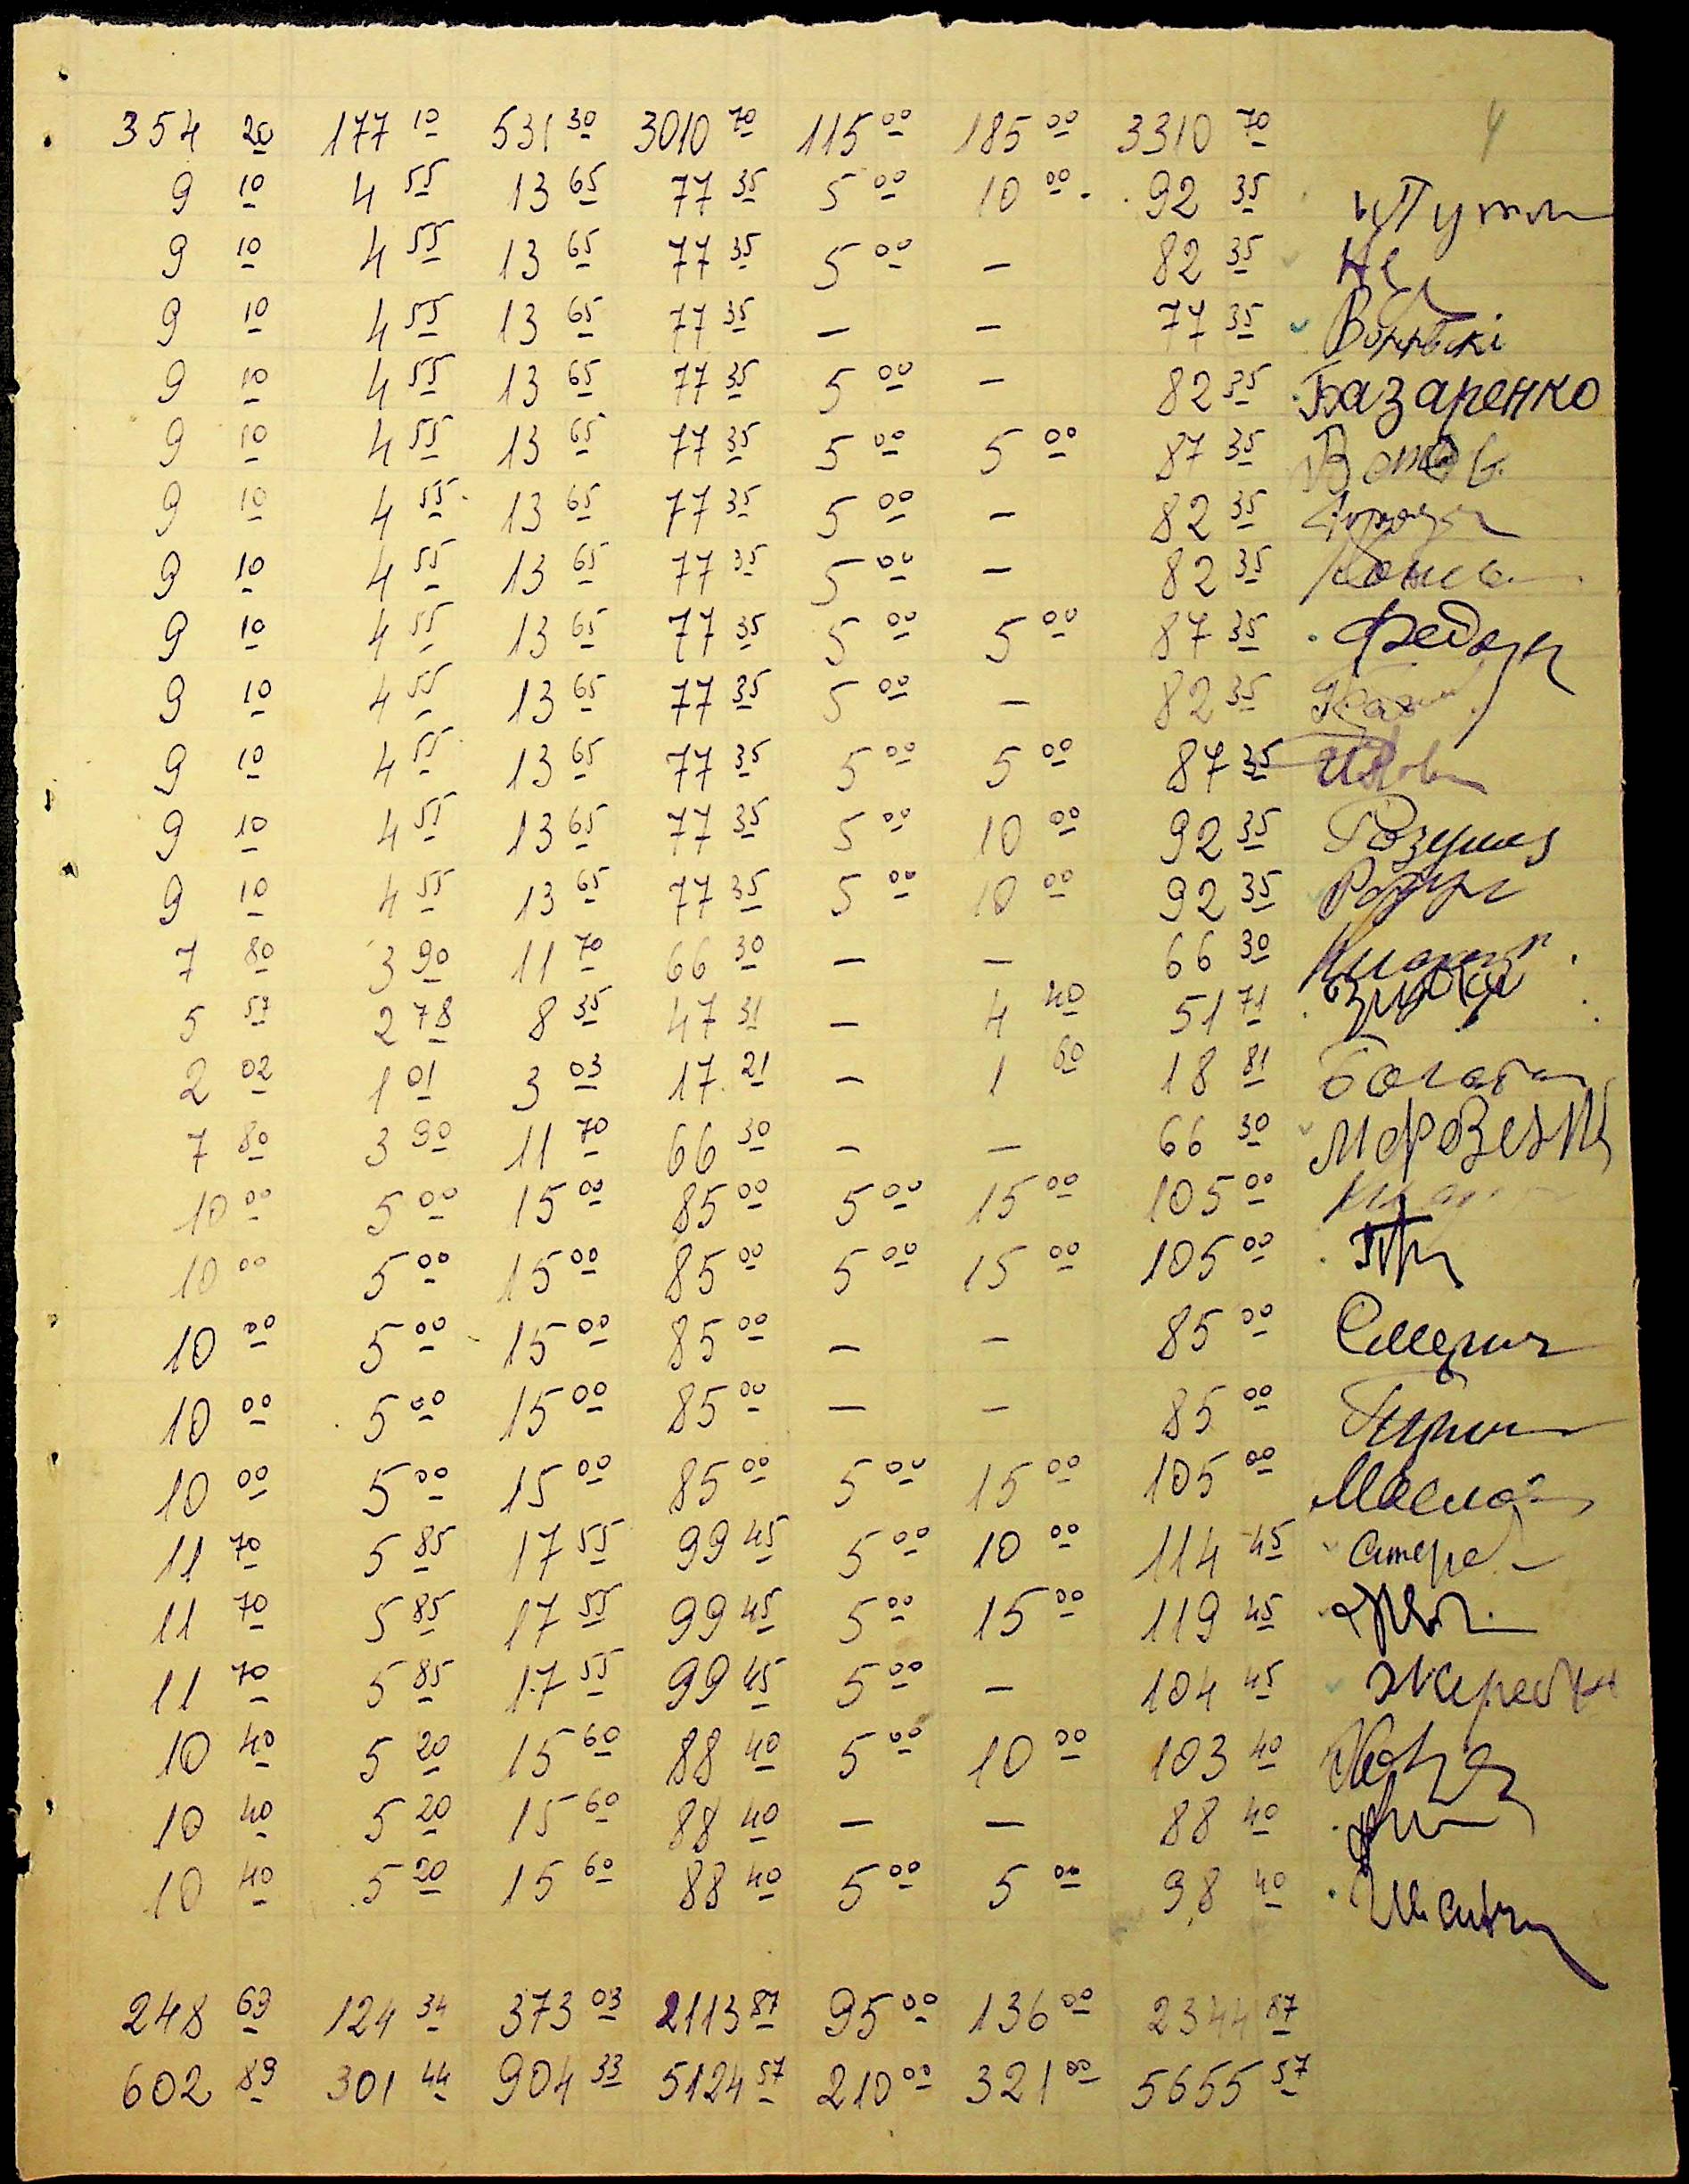 354 20 177 10 531 30 3010 70 115 00 185 00 3310 70 4
9 10 4 55 13 65 77 35 5 00 10 00 92 35
9 10 4 55 13 65 77 35 5 00 — 82 35
9 10 4 55 13 65 77 35 — — 77 35
9 10 4 55 13 65 77 35 5 00 — 82 35 Базаренко
9 10 4 55 13 65 77 35 5 00 5 00 87 35
9 10 4 55 13 65 77 35 5 00 — 82 35
9 10 4 55 13 65 77 35 5 00 — 82 35
9 10 4 55 13 65 77 35 5 00 5 00 87 35
9 10 4 55 13 65 77 35 5 00 — 82 35
9 10 4 55 13 65 77 35 5 00 5 00 87 35
9 10 4 55 13 65 77 35 5 00 10 00 92 35
9 10 4 55 13 65 77 35 5 00 10 00 92 35
7 80 3 90 11 70 66 30 — — 66 30
5 57 2 78 8 35 47 31 — 4 40 51 71
2 02 1 01 3 03 17 21 — 1 60 18 81
7 80 3 90 11 70 66 30 — — 66 30
10 00 5 00 15 00 85 00 5 00 15 00 105 00
10 00 5 00 15 00 85 00 5 00 15 00 105 00
10 00 5 00 15 00 85 00 — — 85 00
10 00 5 00 15 00 85 00 — — 85 00
10 00 5 00 15 00 85 00 5 00 15 00 105 00
11 70 5 85 17 55 99 45 5 00 10 00 114 45
11 70 5 85 17 55 99 45 5 00 15 00 119 45
11 70 5 85 17 55 99 45 5 00 — 104 45
10 40 5 20 15 60 88 40 5 00 10 00 103 40
10 40 5 20 15 60 88 40 — — 88 40
10 40 5 20 15 60 88 40 5 00 5 00 98 40
248 69 124 34 373 03 2113 87 95 00 136 00 2344 87
602 89 301 44 904 33 5124 57 210 00 321 00 5655 57